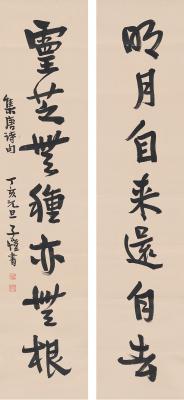 明月自来還自去
靈芝無種亦無根
集唐詩句
丁亥元旦子愷書